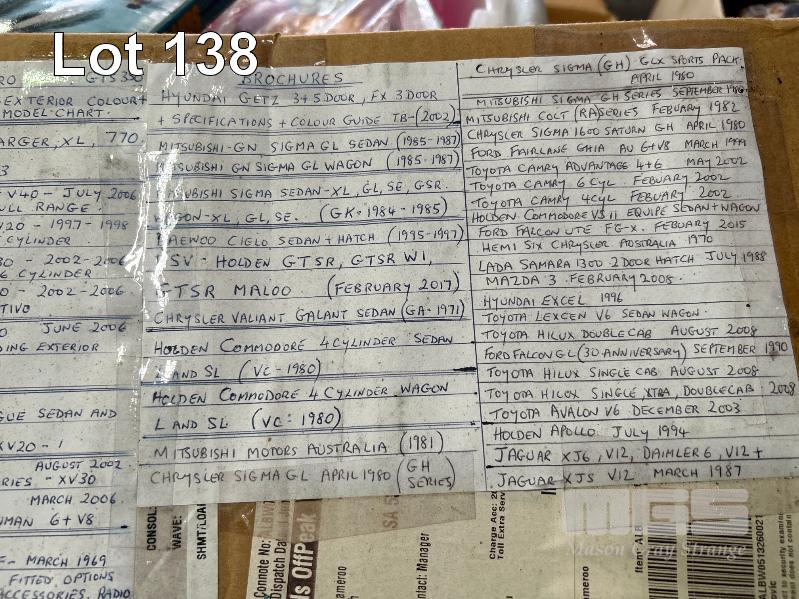 Lot 138
GTS 350
EXTERIOR COLOUR +
MODEL-CHART.
ARGER, XL, 770
3
V40 - JULY 2006
ULL RANGE
20 - 1997-1998
CYLINDER
30 - 2002-2006
6 CYLINDER
0 - 2002-2006
TIVO
0 JUNE 2006
DING EXTERIOR
GUE SEDAN AND
XV20 - 1
AUGUST 2002
RIES - XV30
MARCH 2006
NMAN 6+V8
E - MARCH 1969
FITTED OPTIONS
ACCESSORIES, RADIO
BROCHURES
HYUNDAI GETZ 3+5 DOOR, FX 3 DOOR
+ SPECIFICATIONS + COLOUR GUIDE TB-(2002)
MITSUBISHI-GN SIGMA GL SEDAN (1985-1987)
MITSUBISHI GN SIGMA GL WAGON (1985-1987)
MITSUBISHI SIGMA SEDAN-XL, GL, SE, GSR.
WAGON-XL, GL, SE. (GK-1984-1985)
DAEWOO CIELO SEDAN + HATCH (1995-1997)
HSV - HOLDEN GTSR, GTSR W1,
GTSR MALOO (FEBRUARY 2017)
CHRYSLER VALIANT GALANT SEDAN (GA-1971)
HOLDEN COMMODORE 4 CYLINDER SEDAN
L AND SL (VC-1980)
HOLDEN COMMODORE 4 CYLINDER WAGON
L AND SL (VC: 1980)
MITSUBISHI MOTORS AUSTRALIA (1981)
CHRYSLER SIGMA GL APRIL 1980 (GH SERIES)
CHRYSLER SIGMA (GH) GLX SPORTS PACK
APRIL 1980
MITSUBISHI SIGMA GH SERIES SEPTEMBER 1980
MITSUBISHI COLT (RA) SERIES FEBUARY 1982
CHRYSLER SIGMA 1600 SATURN GH APRIL 1980
FORD FAIRLANE GHIA AU 6+V8 MARCH 1999
TOYOTA CAMRY ADVANTAGE 4+6 MAY 2002
TOYOTA CAMRY 6 CYL FEBUARY 2002
TOYOTA CAMRY 4CYL FEBUARY 2002
HOLDEN COMMODORE VS II EQUIPE SEDAN + WAGON
FORD FALCON UTE FG-X. FEBUARY 2015
HEMI SIX CHRYSLER AUSTRALIA 1970
LADA SAMARA 1300 2 DOOR HATCH JULY 1988
MAZDA 3 FEBRUARY 2008.
HYUNDAI EXCEL 1996
TOYOTA LEXCEN V6 SEDAN WAGON.
TOYOTA HILUX DOUBLE CAB AUGUST 2008
FORD FALCON GL (30 ANNIVERSARY) SEPTEMBER 1990
TOYOTA HILUX SINGLE CAB AUGUST 2008
TOYOTA HILUX SINGLE, XTRA, DOUBLECAB 2008
TOYOTA AVALON V6 DECEMBER 2003
HOLDEN APOLLO JULY 1994
JAGUAR XJ6, V12, DAIMLER 6, V12 +
JAGUAR XJS V12 MARCH 1987
CONSOL
WAVE:
SHMT/LOA
Connote No:
Dispatch Dat
OffPeak
ameroo
SA 5
ntact: Manager
Charge Acc:
Toll Extra Serv
ameroo
Item
ALBW0513260021
MGS
Mason Gray Strange